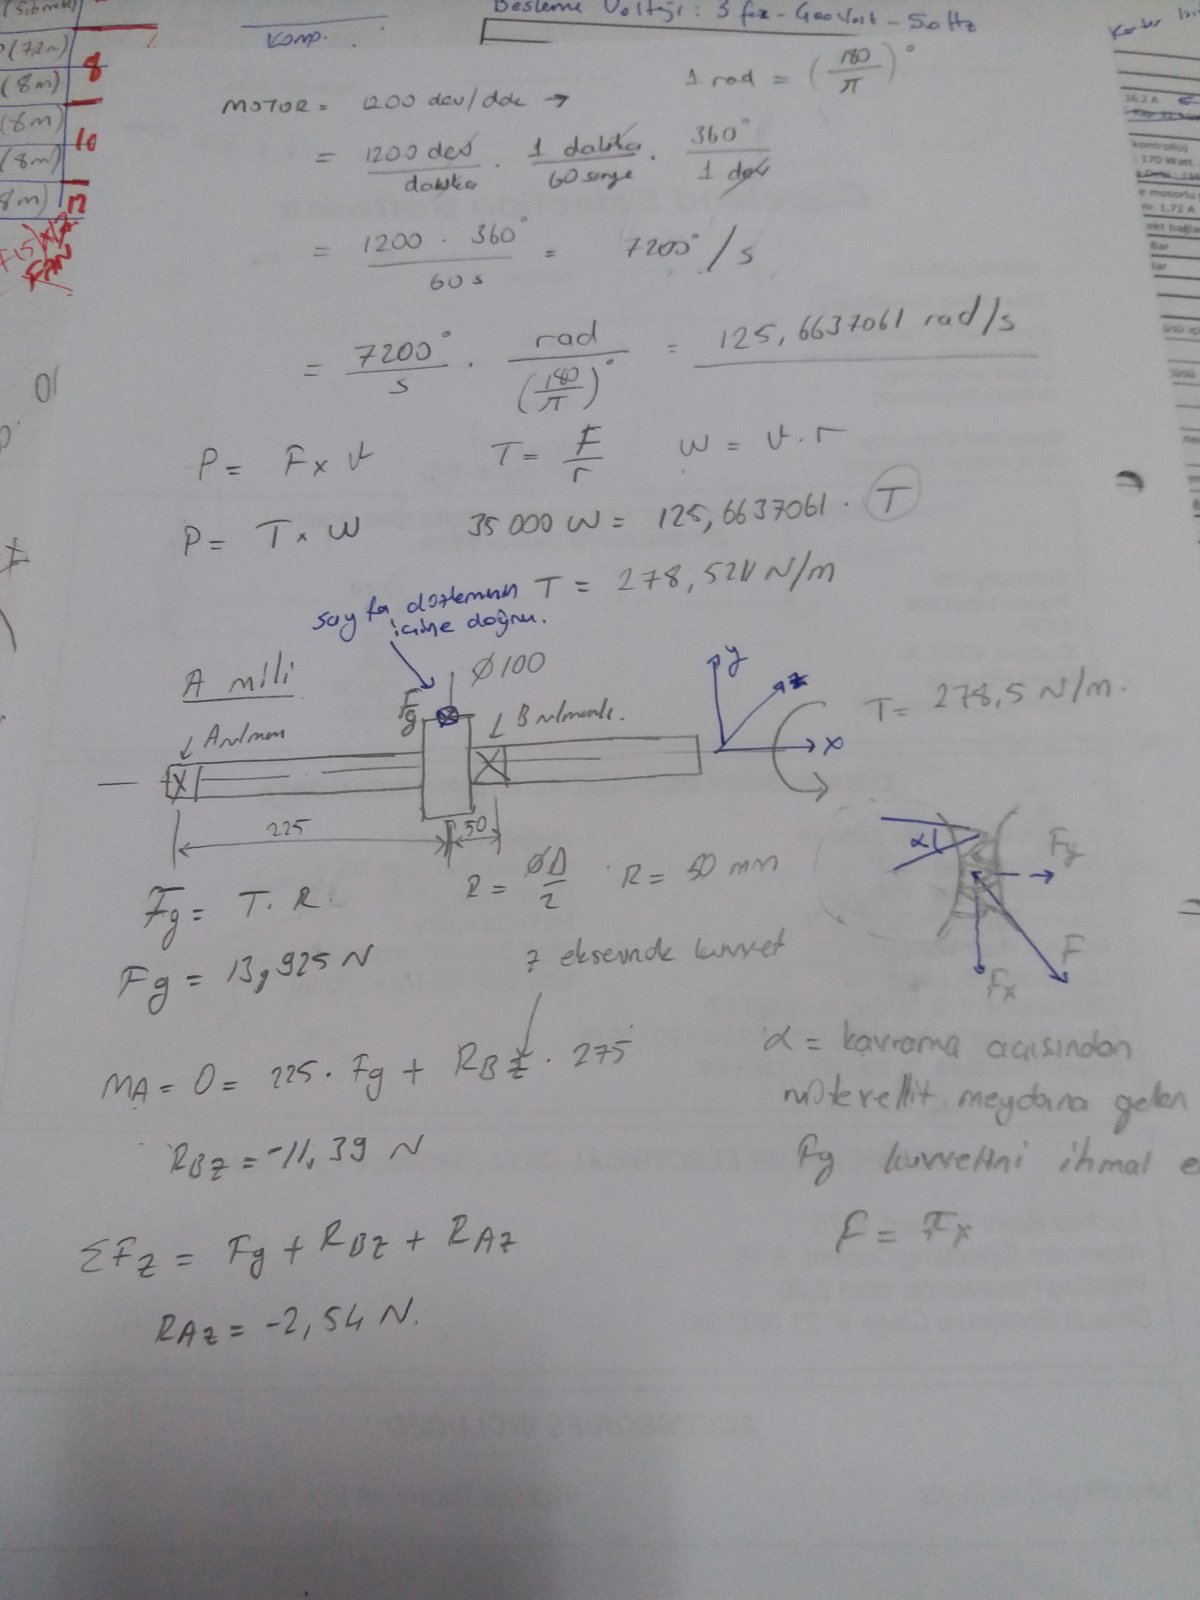 (7.2m)
8
(8m)
(8m)
10
(8m)
8m)
FAN
Komp.
Besleme Voltajı : 3 faz - 400 Volt - 50 Hz
1 rad = (180/π)°
MOTOR = 1200 dev/dak →
= 1200 dev/dakika . 1 dakika/60 saniye . 360°/1 dev
= 1200 . 360°/60 s = 7200°/s
= 7200°/s . rad/(180/π)° = 125,6637061 rad/s
10
P = F x v T = F/r w = v.r
P = T x w 35 000 W = 125,6637061 . T
T = 278,521 N/m
sayfa düzleminin
içine doğru.
A mili
Ø100
Fg
A rulman
B rulmanı.
y
z
x
T = 278,5 N/m.
225
50
α
Fy
F
Fx
Fg = T. R.
R = ØD/2 R = 50 mm
Fg = 13,925 N
z ekseninde kuvvet
MA = 0 = 225. Fg + RBz . 275
RBz = -11,39 N
ΣFz = Fg + RBz + RAz
RAz = -2,54 N.
α = kavrama açısından
mütevellit meydana gelen
Fy kuvvetini ihmal e
F = Fx
170 Watt.
1.72 A
Bar